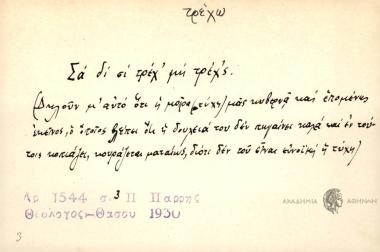 τρέχω
Σά δέ σέ τρέχ' μή τρέχς.
(Δηλοῦν μ' αὐτό ὅτι ἡ μοῖρα (τύχη) μᾶς κυβερνᾷ καί ἑπομένως
ἐκεῖνος, ὁ ὁποῖος βλέπει ὅτι ἡ δουλειά του δέν πηγαίνει καλά καί ἐν τού-
τοις κοπιάζει, κουράζεται ματαίως, διότι δέν τοῦ εἶναι εὐνοϊκή ἡ τύχη)
Αρ 1544 σ. 3 Π Παρρης
Θεολογος-Θασου 1930
ΑΚΑΔΗΜΙΑ ΑΘΗΝΩΝ
3